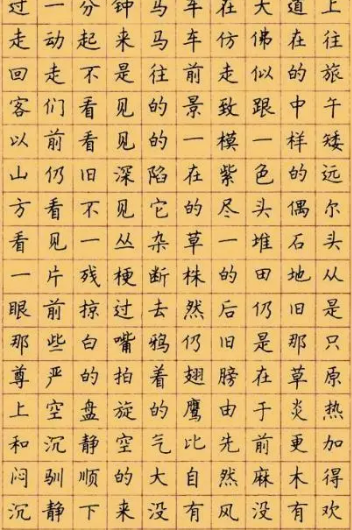 过一分钟马车在大道上
走动起来马车仿佛在往
回走不是往前走似的旅
客们看见的景致跟中午
以前看见的一模一样矮
山仍旧深陷在紫色的远
方看不见它的尽头偶尔
看见一丛杂草一堆石头
一片残梗断株的田地从
眼前掠过去然后仍旧是
那些白嘴鸦仍旧是那只
尊严的拍着翅膀在草原
上空盘旋的鹰由于炎热
和沉静空气比先前更加
闷驯顺的大自然麻木得
沉静下来没有风没有欢